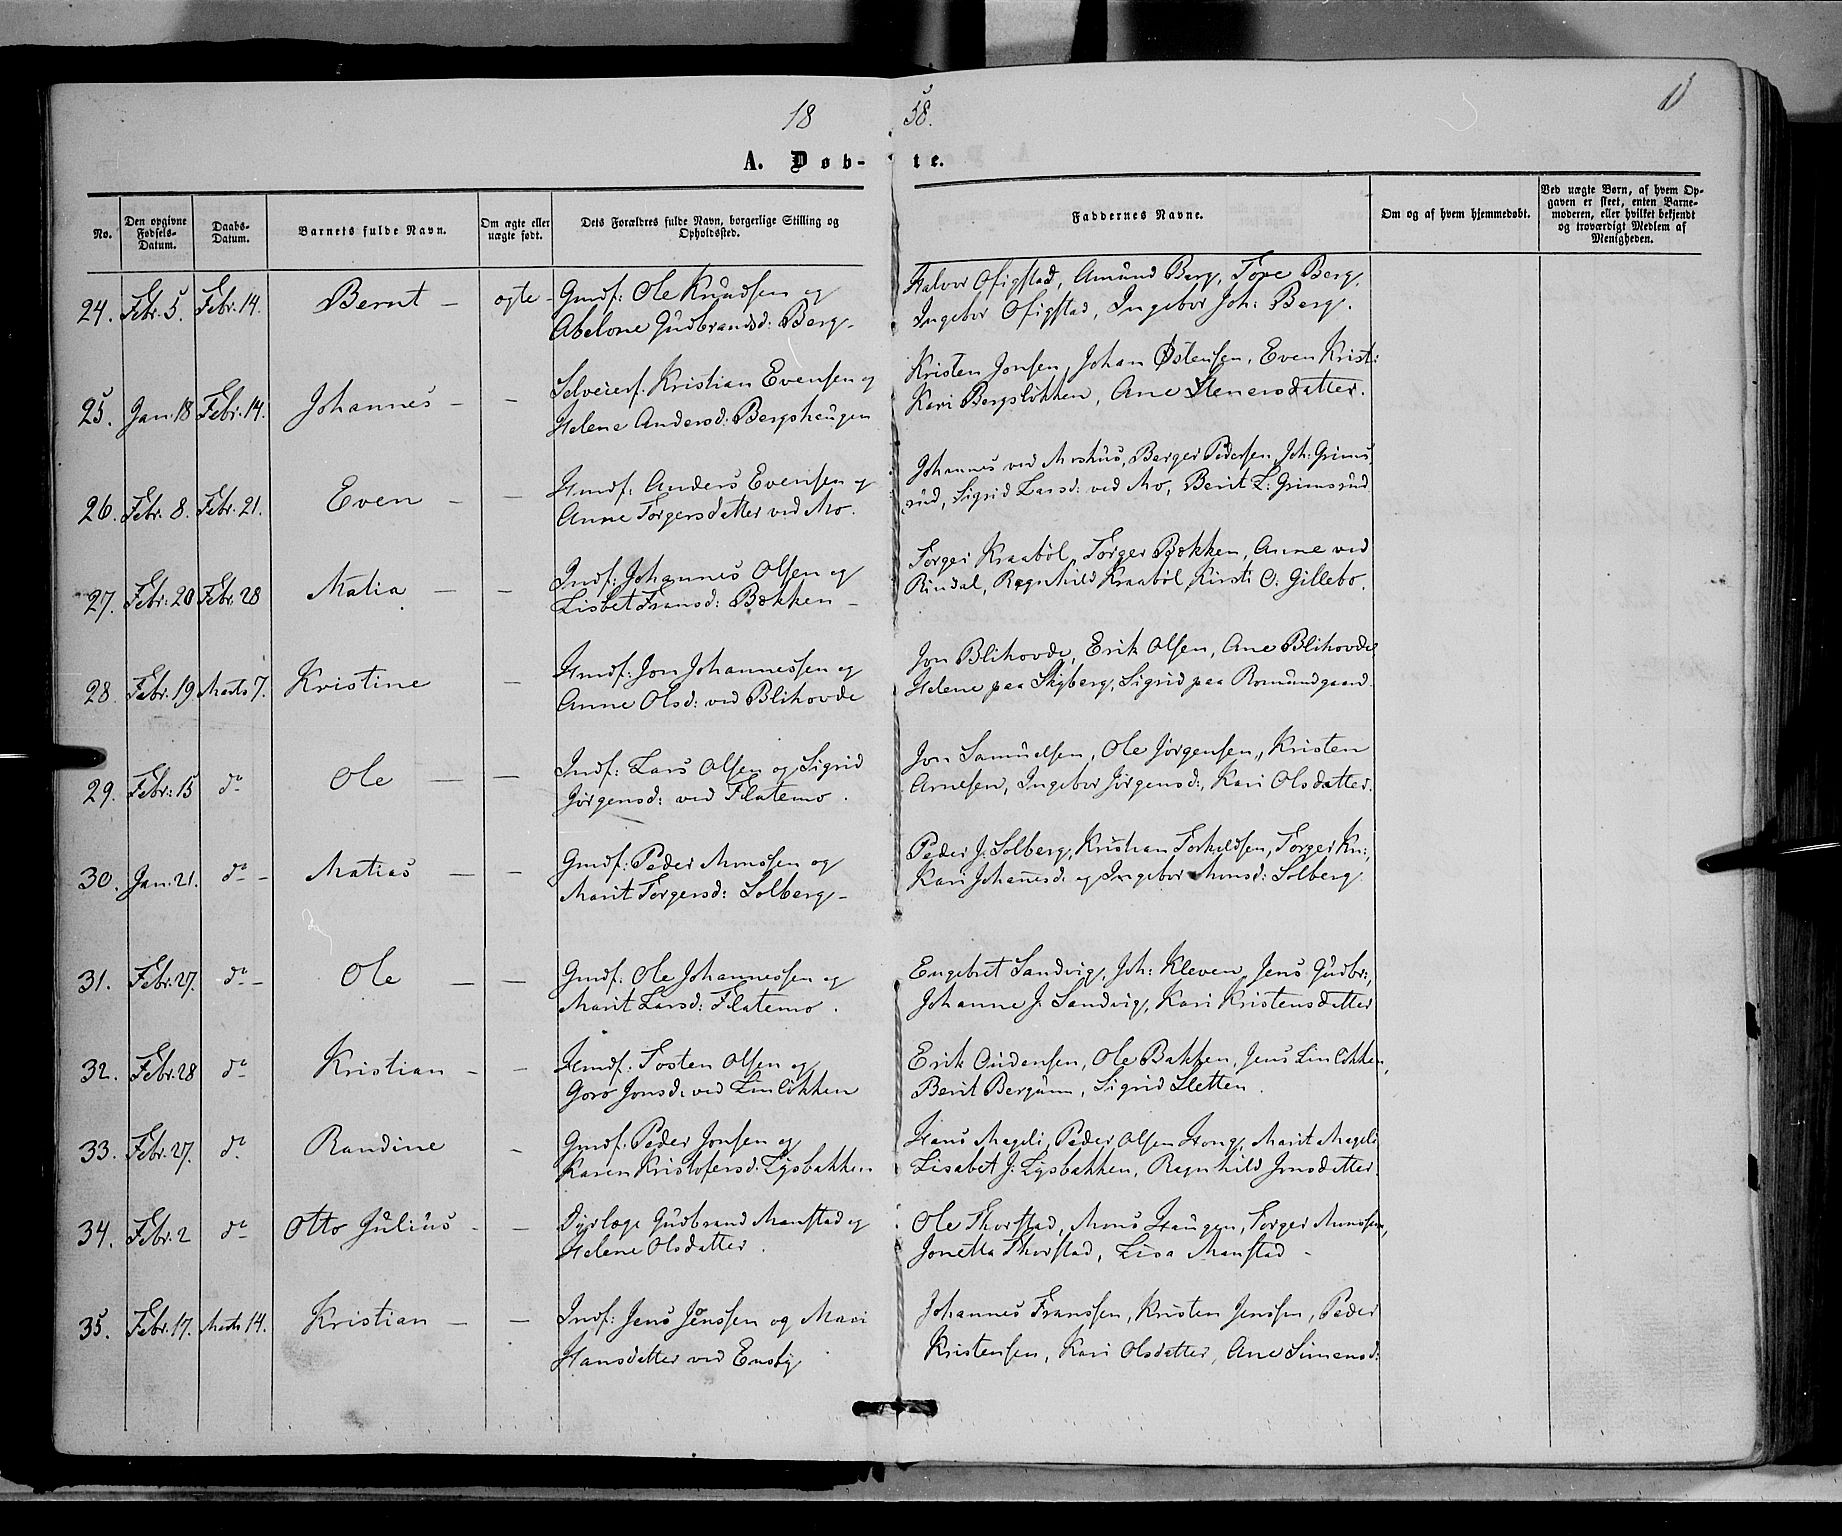 18 58.
A. Døb- te.
No. Den opgivne Fødsels-Datum. Daabs-Datum. Barnets fulde Navn. Om ægte eller uægte født. Dets Forældres fulde Navn, borgerlige Stilling og Opholdssted. Faddernes Navne. Om og af hvem hjemmedøbt. Ved uægte Børn, af hvem Opgaven er skeet, enten Barnemoderen, eller hvilket bekjendt og troværdigt Medlem af Menigheden.
24. Febr. 5. Febr. 14. Bernt – ægte – Gmdf: Ole Knudsen og Halvor Ofigstad, Amund Berg, Tore Berg,
Abelone Gudbrandsd: Berg. Ingebor Ofigstad, Ingebor Joh: Berg.
25. Jan. 18 Febr. 14. Johannes – – Selveierf. Kristian Evensen og Kristen Jonsen, Johan Østensen, Even Krist:
Helene Andersd: Bergshaugen Kari Bergsløkken, Ane Stenersdatter.
26. Febr. 8. Febr. 21. Even – – Hmdf: Anders Evensen og Johannes ved Moshus, Børger Pedersen, Joh: Grims
Anne Torgersdatter ved Mo. rud, Sigrid Larsd: ved Mo, Berit L: Grimsrud
27. Febr. 20 Febr. 28 Matia – – Indf: Johannes Olsen og Torger Kraabøl, Torger Bækken, Anne ved
Lisbet Fransd: Bækken – Rindal, Ragnhild Kraabøl, Kirsti O: Gillebo.
28. Febr. 19 Marts 7. Kristine – Hmdf: Jon Johannessen og Jon Blihovde, Erik Olsen, Ane Blihovde
Anne Olsd: ved Blihovde Helene paa Skyberg, Sigrid paa Romundgaard.
29. Febr. 15 do Ole – – Indf: Lars Olsen og Sigrid Jon Samuelsen, Ole Jørgensen, Kristen
Jørgensd: ved Flatemo. Arnesen, Ingebor Jørgensd:, Kari Olsdatter.
30. Jan. 21. do – Matias – – Gmdf: Peder Monssen og Peder J: Solberg, Kristian Torkildsen, Torger Kn:,
Marit Torgersd: Solberg – Kari Johannesd: og Ingebor Monsd: Solberg
31. Febr. 27. do – Ole – – Gmdf: Ole Johannessen og Engebret Sandvig, Joh: Kleven, Jens Gudbr:,
Marit Larsd: Flatemo. Johanne J. Sandvig, Kari Kristensdatter
32. Febr. 28 do Kristian – – Hmdf. Tosten Olsen og Erik Audensen, Ole Bakken, Jens Linløkken,
Goro Jonsd: ved Linløkken Berit Bergum, Sigrid Sletten.
33. Febr. 27. do Randine – Gmdf: Peder Jonsen og Hans Mageli, Peder Olsen Hong, Marit Mageli
Karen Kristofersd: Lysbakken Lisabet J: Lysbakken, Ragnhild Jonsdatter.
34. Febr. 2 do Otto Julius – – Dyrlæge Gudbrand Manstad og Ole Thorstad, Mons Haugen, Torger Monssen,
Helene Olsdatter. Jonetta Thorstad, Lisa Manstad –
35. Febr. 17. Marts 14. Kristian – – Indf: Jens Jenssen og Mari Johannes Franssen, Kristen Jenssen, Peder
Hansdatter ved Ensby Kristensen, Kari Olsdatter, Ane Simensd: